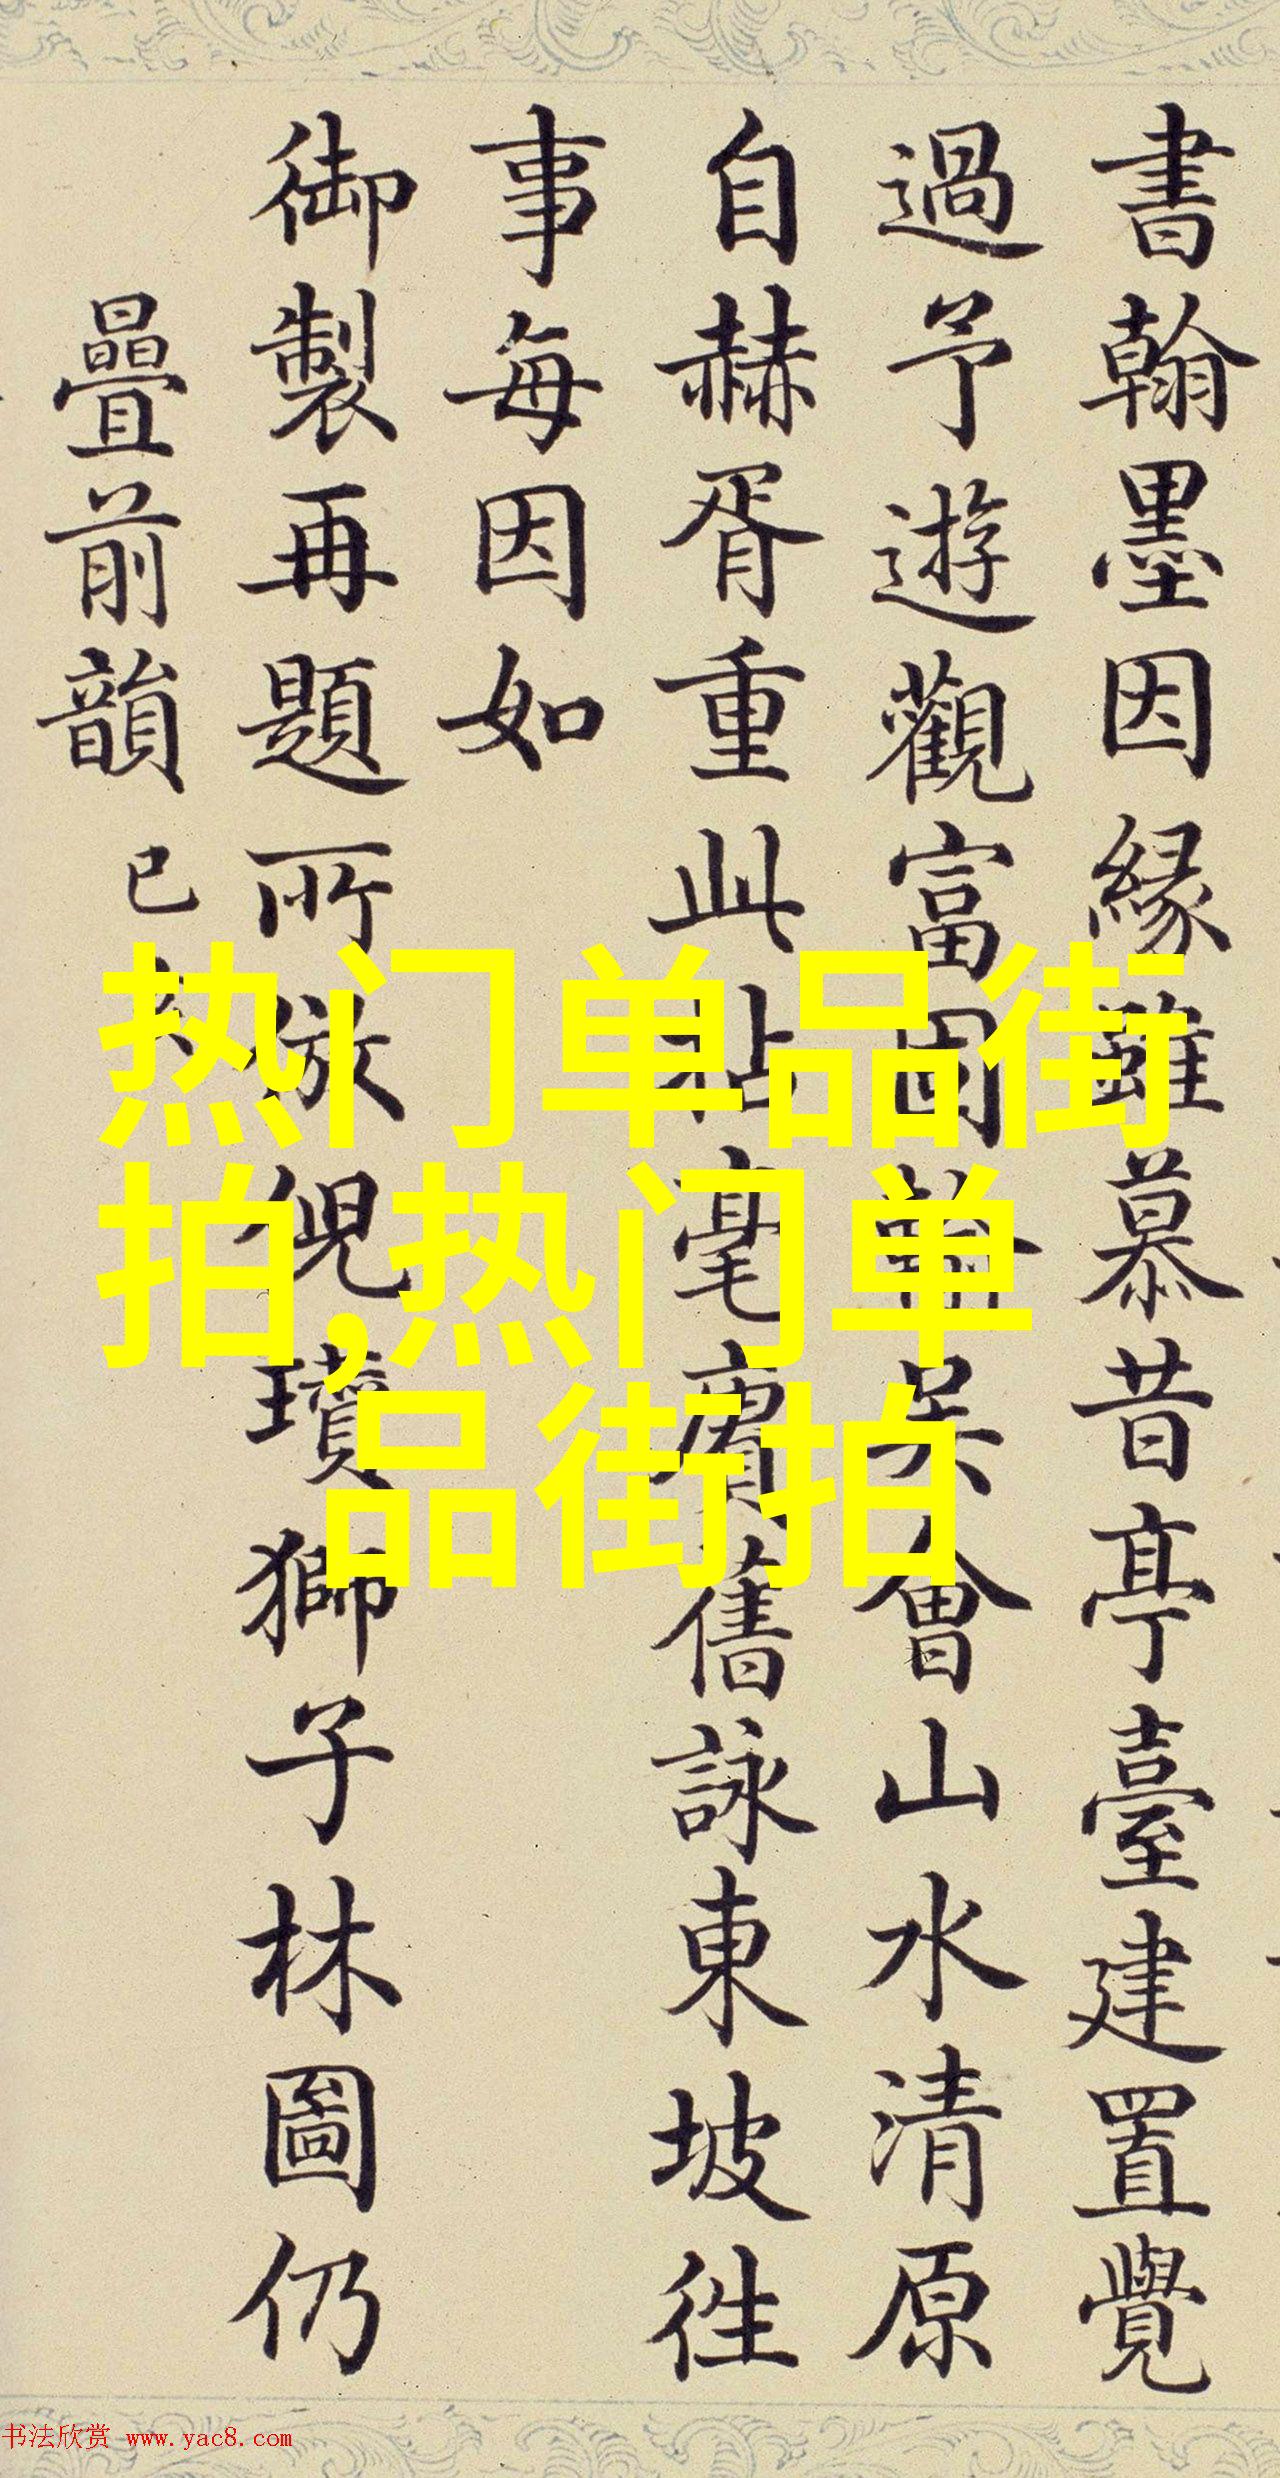 書翰墨因緣雖慕昔亭臺建置覺
過予遊觀富因吳會山水清原
自赫胥重此拈毫賡舊詠東坡往
事每因如
御製再題所倣倪瓚獅子林圖仍
疊前韻 已
热门单品街
拍,热门单
品街拍
书法欣赏 www.yac8.com